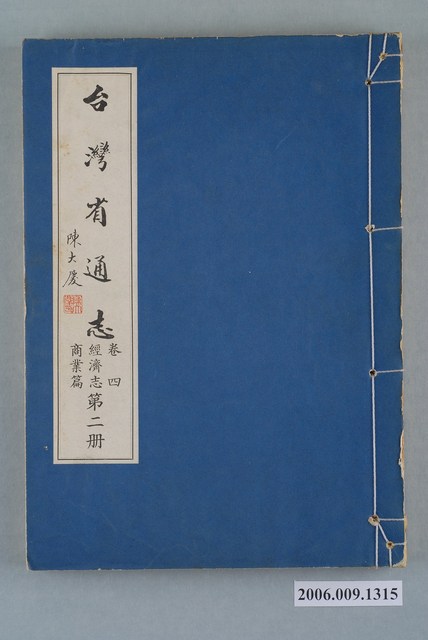 台灣省通志
陳大慶
卷四
經濟志
商業篇
第二册
2006.009.1315